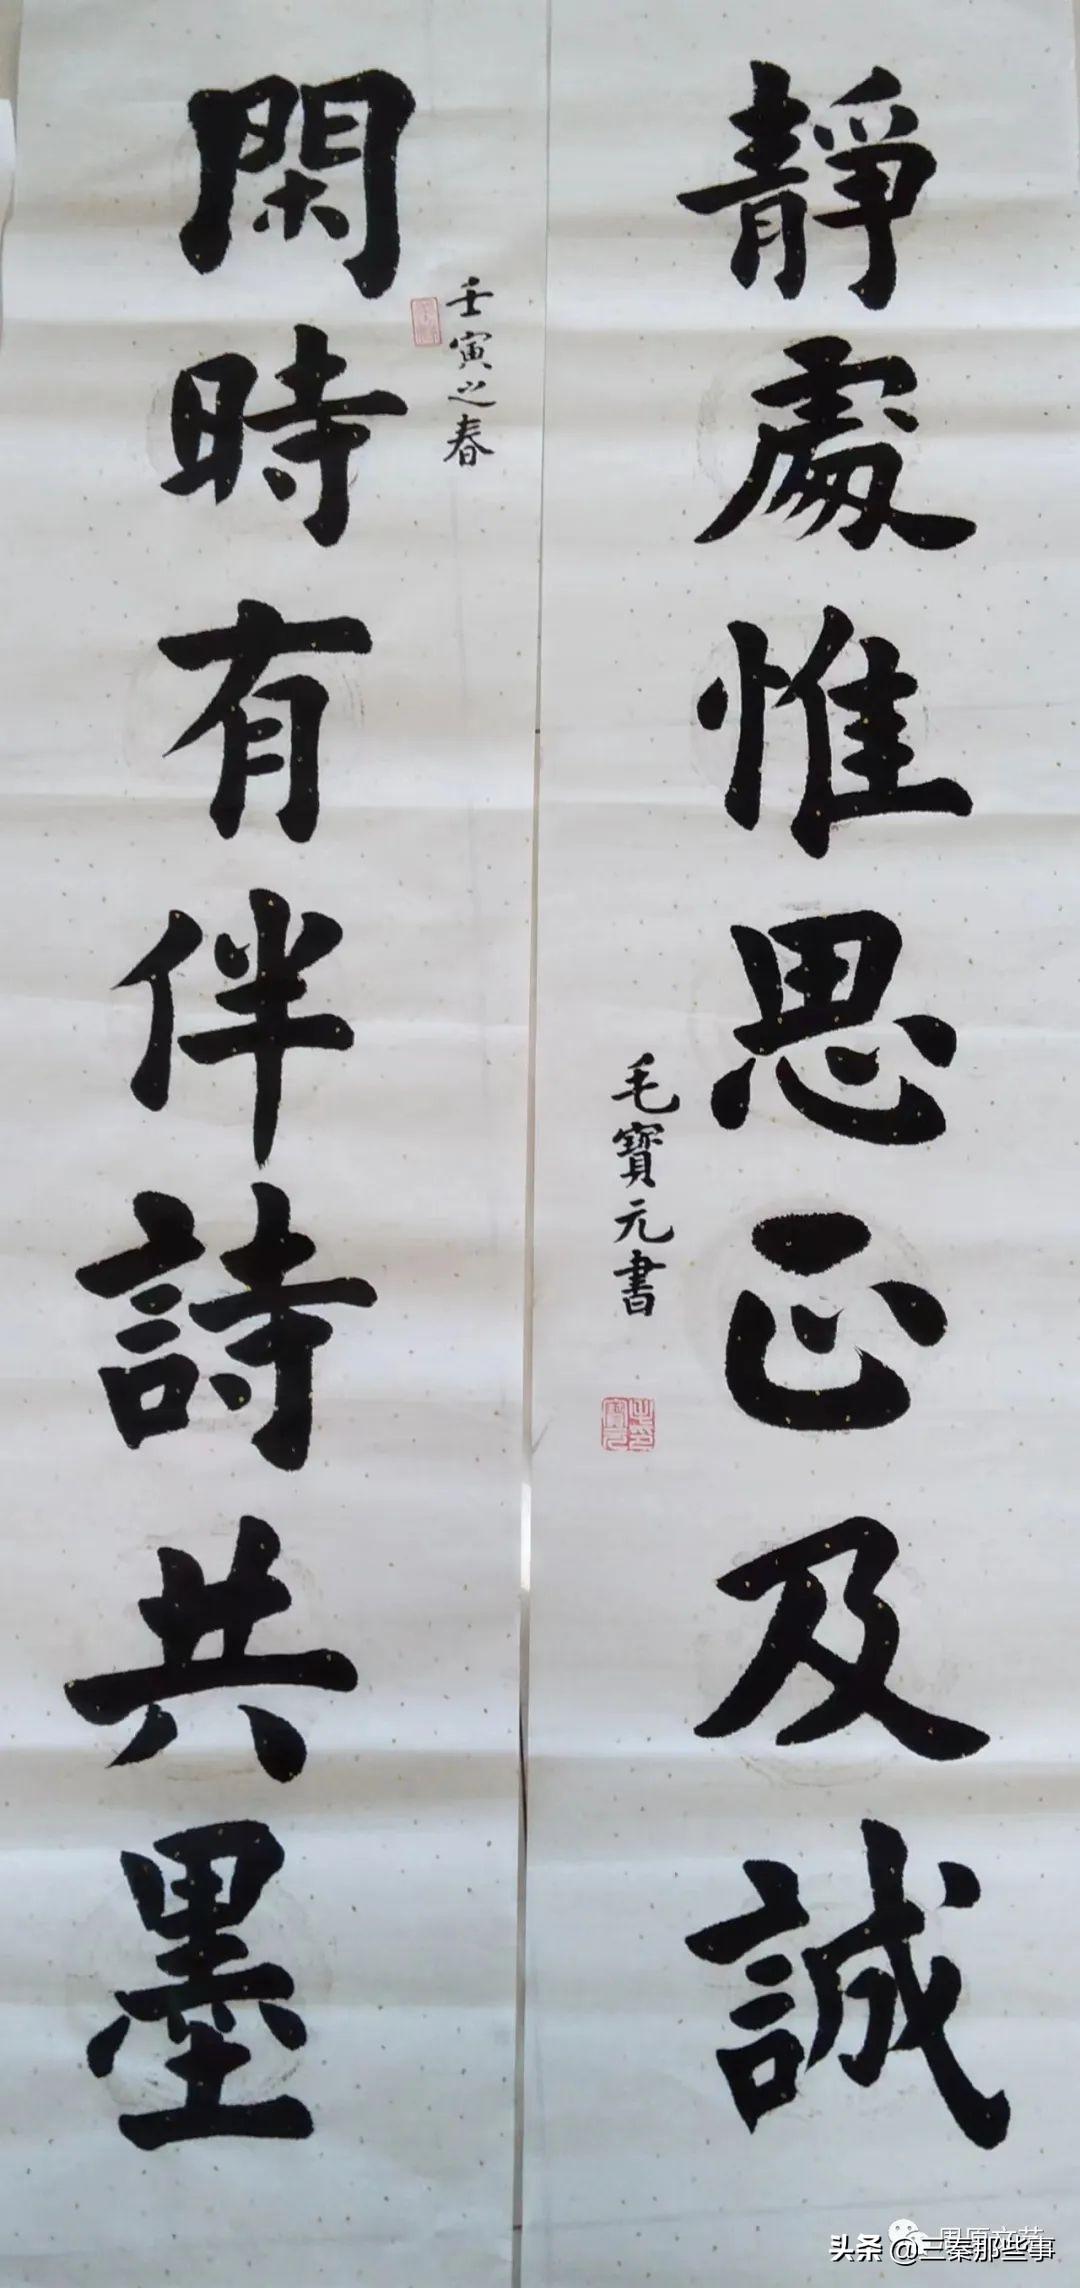 靜處惟思正及誠
毛寶元書
壬寅之春
閑時有伴詩共墨
头条 @三秦那些事